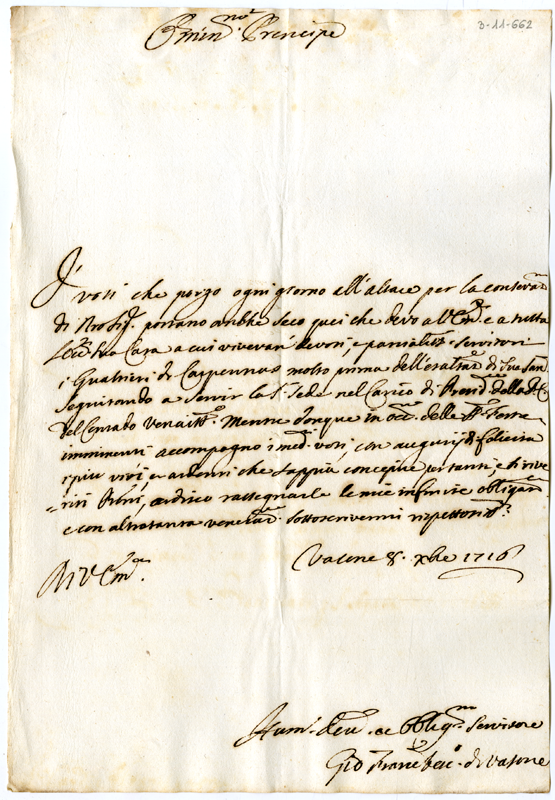 Emin.mo Prencipe
3-11-662
I voti che porgo ogni giorno all'altare per la conservaz.
di Nro Sig. portano anche seco quei che devo all'Em. e a tutta
Sua Casa a cui viveran devoti, e parzialiss. servitori
i Gualtieri di molto prima dell'esaltaz. di Sua San.
seguitando a servir la S. Sede nel Carico di della
del Contado Venais. Mentre donque in occ. delle SS. Feste
imminenti accompagno i med. voti, con augurij di felicità
i piu vivi e ardenti che sappia concepire per tanti, e di rive
=riti ardisco rassegnarle le mie infinite obligaz.
e con altretanta veneraz. sottoscrivermi rispettosis.
Di V. Em.
Vasone 8. xbre 1716
Hum. dev. et obblig.mo servitore
Gio. Franc. Vesc. di Vasone